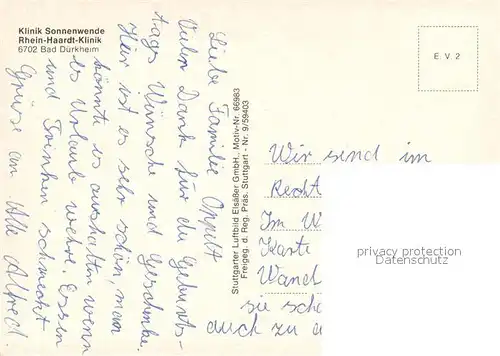 Klinik Sonnenwende
Rhein-Haardt-Klinik
6702 Bad Dürkheim
E. V. 2
Liebe Familie Oppelt
Vielen Dank für die Geburts-
tags Wünsche und Geschenke.
Hier ist es sehr schön, man
könnte es aushalten wenn
es Urlaub wehre. Essen
und Trinken schmeckt
Grüsse an Alle Albred.
Stuttgarter Luftbild Elsäßer GmbH, Motiv-Nr. 66983
Freigeg. d. Reg. Präs. Stuttgart - Nr. 9/59403
Wir send im
Recht
Im W
Karte
Wand
sie scho
auch zu a
privacy protection
Datenschutz